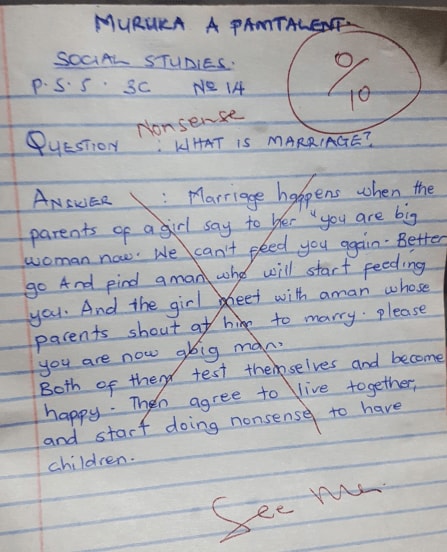 MURUKA A PAMTALENT.
SOCIAL STUDIES.
P.S.S. 3C NO 14
0/10
Nonsense
QUESTION : WHAT IS MARRIAGE?
ANSWER : Marriage happens when the
parents of a girl say to her "you are big
woman now. We can't feed you again. Better
go And find aman who will start feeding
you. And the girl meet with aman whose
parents shout at him to marry. please
you are now abig man.
Both of them test themselves and become
happy. Then agree to live together,
and start doing nonsense to have
children.
See me